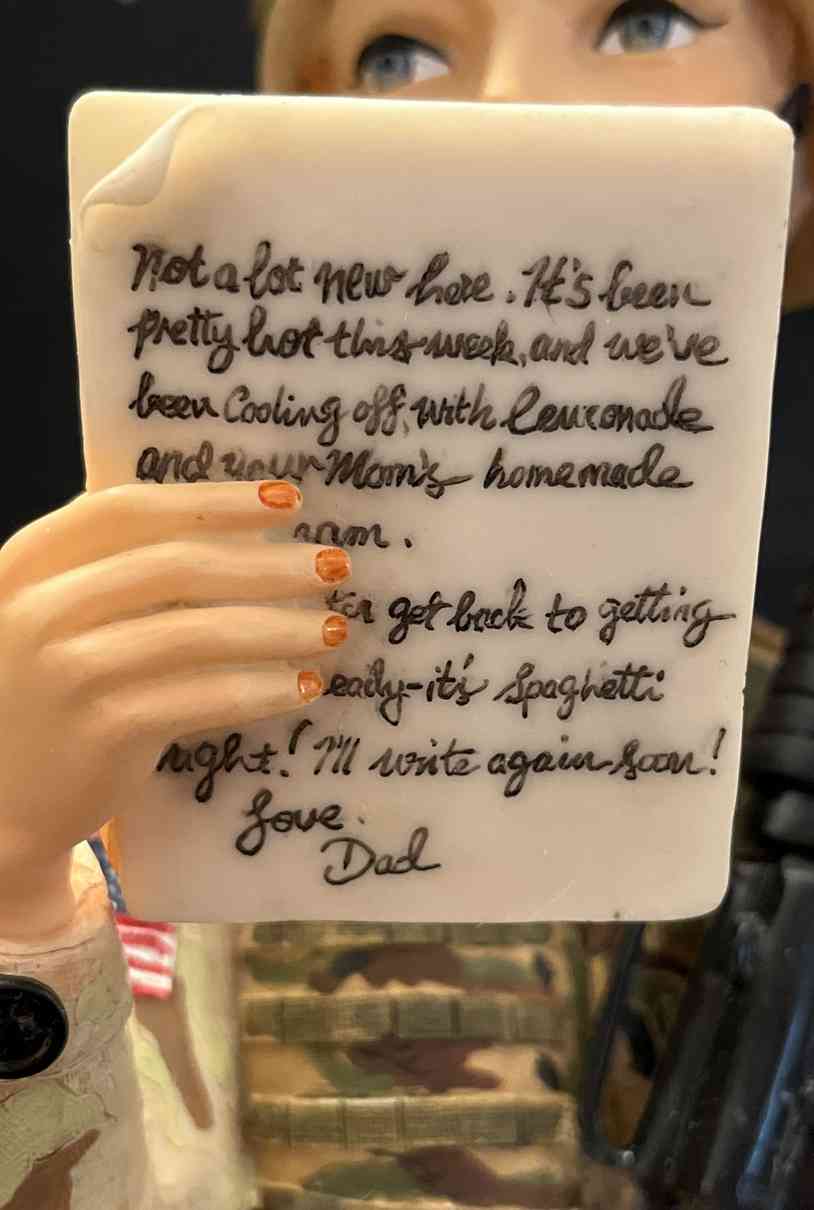 Not a lot new here. It's been
pretty hot this week, and we've
been cooling off, with lemonade
and your Mom's homemade
eam.
get back to getting
eady-it's spaghetti
night! I'll write again soon!
Love.
Dad